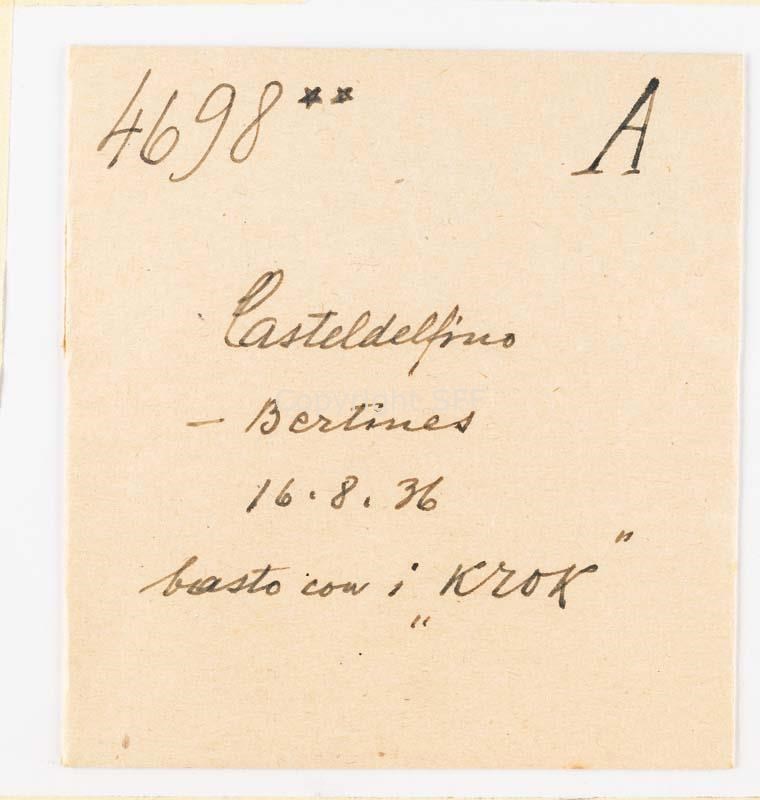 4698** A
Casteldelfino
- Bertines
16.8.36
basto con i „KROK"